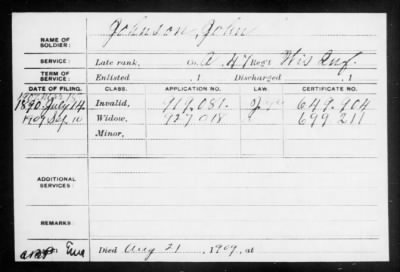 NAME OF SOLDIER: Johnson, John
SERVICE: Late rank, Co. A, 47 Reg't Wis Inf.
TERM OF SERVICE: Enlisted , 1 Discharged , 1
DATE OF FILING. CLASS. APPLICATION NO. LAW. CERTIFICATE NO.
1890 July 14 Invalid, 919.081. 649.904
1909 Sep. 10 Widow, 927018 699211
Minor,
ADDITIONAL SERVICES:
REMARKS:
Died Aug 21, 1909, at